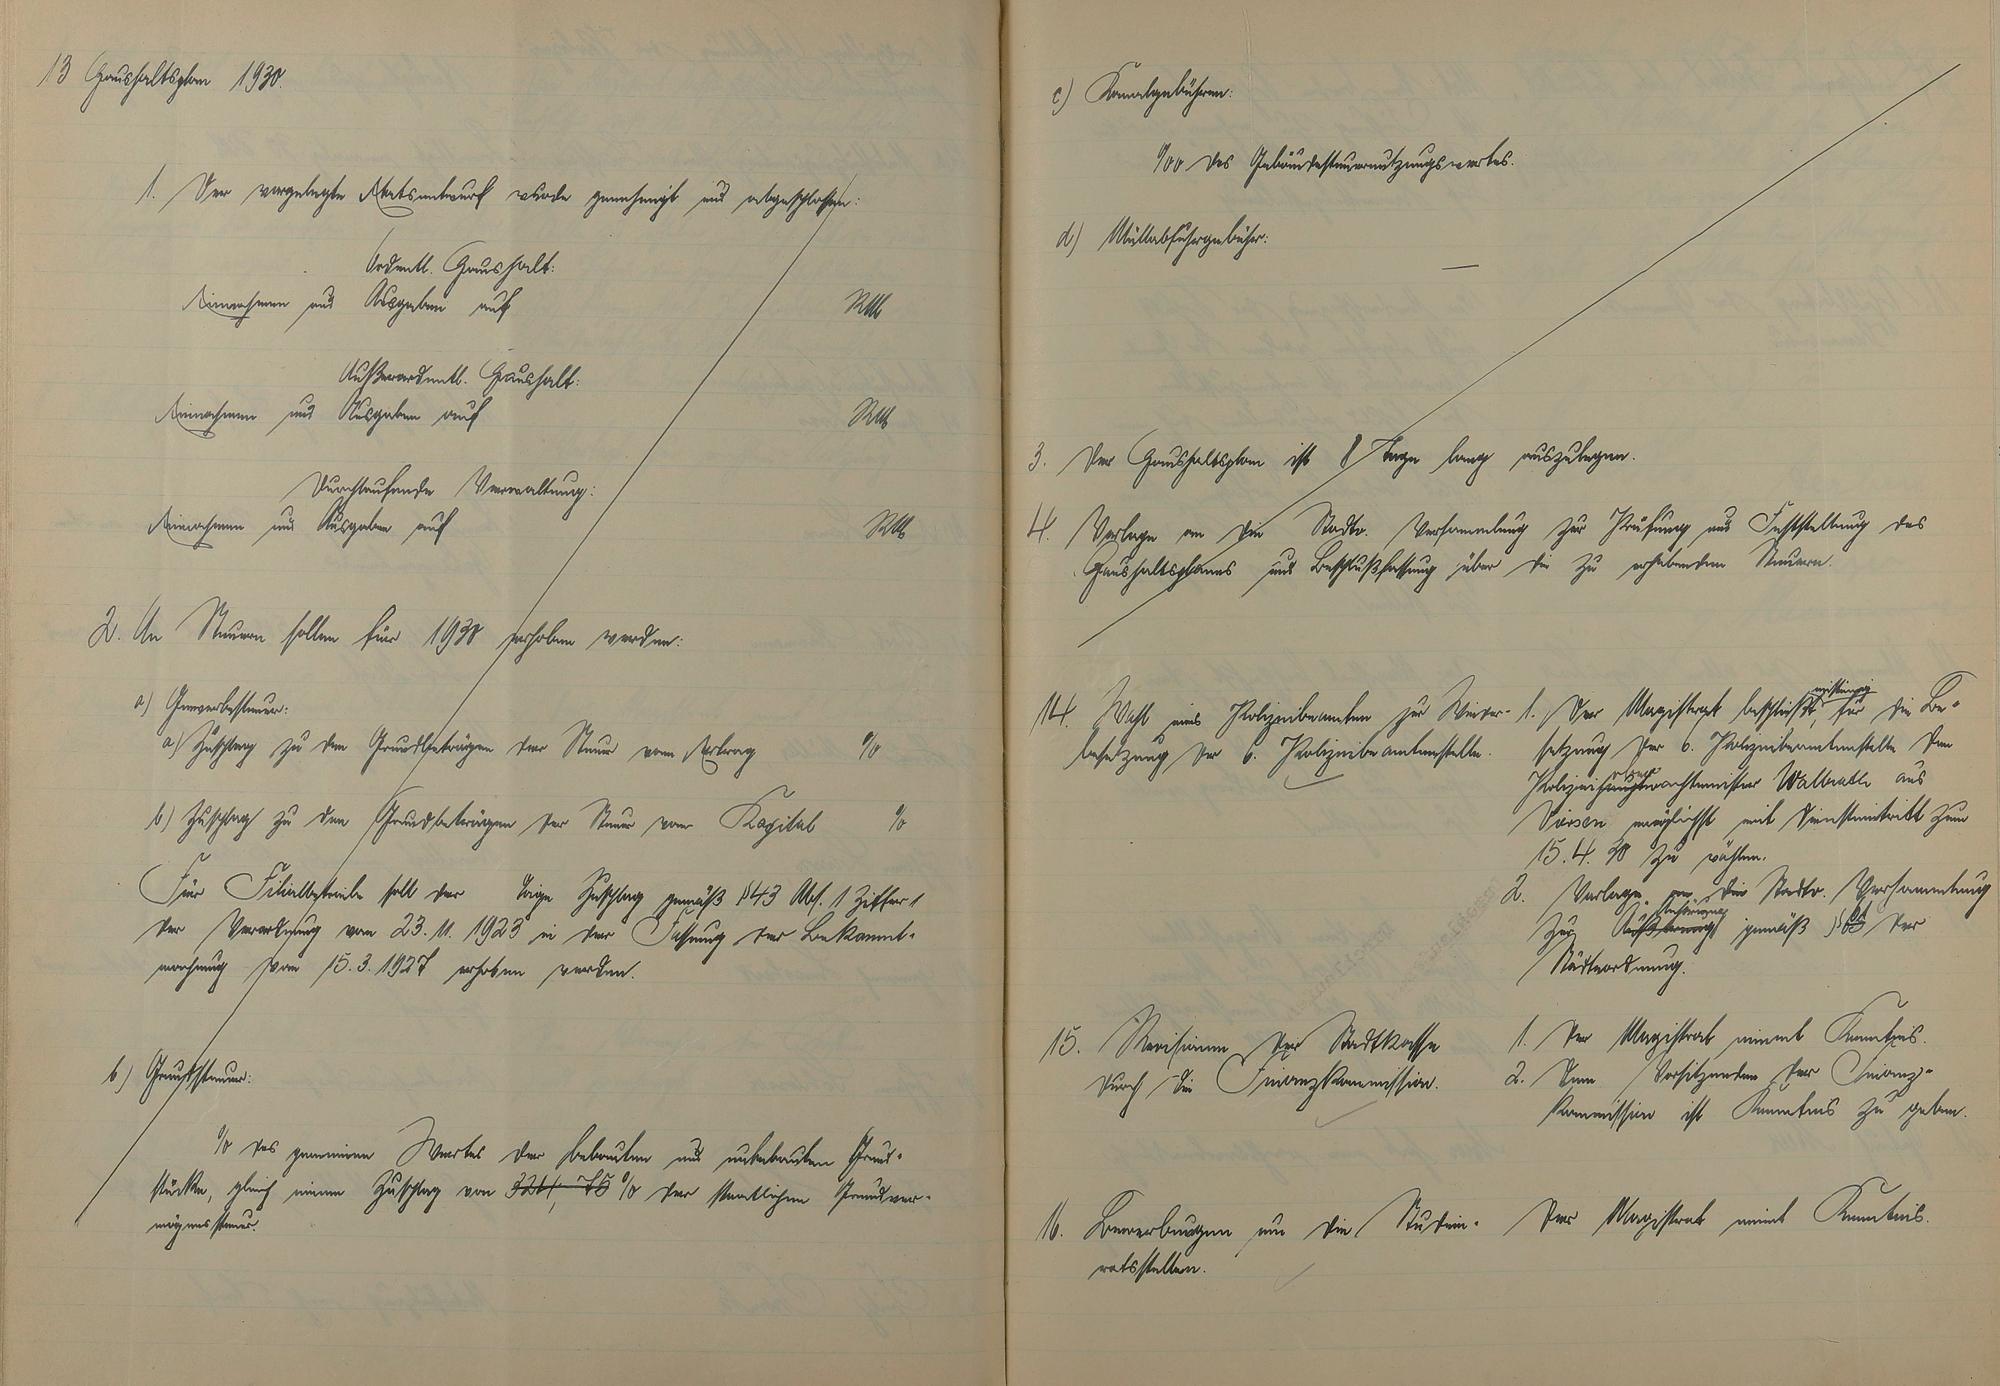 13 Haushaltsplan 1930.
1. Der vorgelegte Etatsentwurf wurde genehmigt und abgeschlossen:
Ordentl. Haushalt:
Einnahmen und Ausgaben auf RM
Außerordentl. Haushalt:
Einnahmen und Ausgaben auf RM
Durchlaufende Verwaltung:
Einnahmen und Ausgaben auf RM
2. An Steuern sollen für 1930 erhoben werden:
a) Gewerbesteuer:
a) Zuschlag zu den Grundbeträgen der Steuer vom Ertrag %
b) Zuschlag zu den Grundbeträgen der Steuer vom Kapital %
Für Filialbetriebe soll der %ige Zuschlag gemäß § 43 Abs. 1 Ziffer 1
der Verordnung vom 23. 11. 1923 in der Fassung der Bekannt-
machung vom 15. 3. 1927 erhoben werden.
b) Grundsteuer:
% des gemeinen Wertes der bebauten und unbebauten Grund-
stücke, gleich einem Zuschlag von % der staatlichen Grundver-
mögenssteuer.
c) Kanalgebühren:
%00 des Gebäudesteuernutzungswertes.
d) Müllabfuhrgebühr:
—
3. Der Haushaltsplan ist 8 Tage lang auszulegen.
4. Vorlage an die Stadtv. Versammlung zur Prüfung und Feststellung des
Haushaltsplanes und Beschlußfassung über die zu erhebenden Steuern.
14. Wahl eines Polizeibeamten zur Wieder-
besetzung der 6. Polizeibeamtenstelle.
1. Der Magistrat beschließt, einstimmig für die Be-
setzung der 6. Polizeibeamtenstelle den
Polizeihauptwachtmeister Wallrath aus
Viersen möglichst mit Diensteintritt zum
15. 4. 30 zu wählen.
2. Vorlage an die Stadtv. Versammlung
zur Äußerung gemäß § der
Städteordnung.
15. Revisionen der Stadtkasse
durch die Finanzkommission.
1. Der Magistrat nimmt Kenntnis.
2. Dem Vorsitzenden der Finanz-
kommission ist Kenntnis zu geben.
16. Bewerbungen um die Studien-
ratsstellen.
Der Magistrat nimmt Kenntnis.